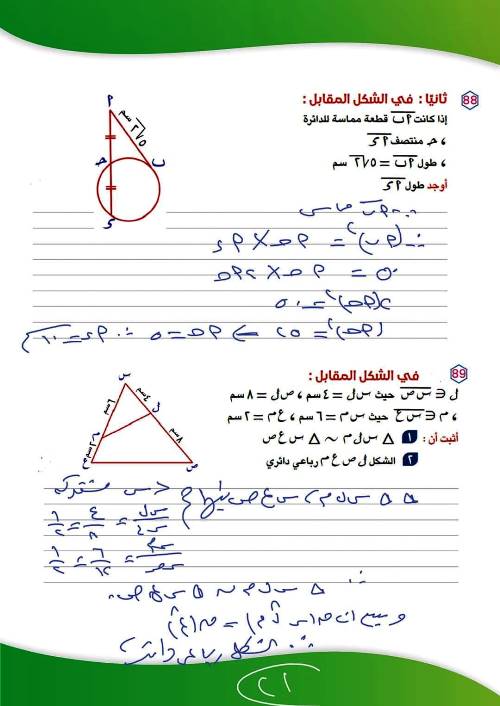 88 ثانيًا : في الشكل المقابل :
إذا كانت أب قطعة مماسة للدائرة
، حـ منتصف أد
، طول أب = ٥√٢ سم
أوجد طول أد
أ
٥√٢ سم
حـ
ب
د
∵ أب مماس
∴ (أب)² = أحـ × أد
٥٠ = أحـ × ٢أحـ
٢(أحـ)² = ٥٠
(أحـ)² = ٢٥ ⇒ أحـ = ٥ ∴ أد = ١٠ سم
89 في الشكل المقابل :
ل ∈ س ص حيث س ل = ٤ سم ، ص ل = ٨ سم
، م ∈ س ع حيث س م = ٦ سم ، ع م = ٢ سم
أثبت أن : ١ △ س ل م ~ △ س ع ص
٢ الشكل ل ص ع م رباعي دائري
س
٤ سم
٦ سم
ل
م
٨ سم
٢ سم
ع
ص
△ △ س ل م ، س ع ص فيهما { > س مشتركة
س ل / س ع = ٤ / ٨ = ١ / ٢
س م / س ص = ٦ / ١٢ = ١ / ٢
∴ △ س ل م ~ △ س ع ص
∴ الشكل رباعي دائري
٢١